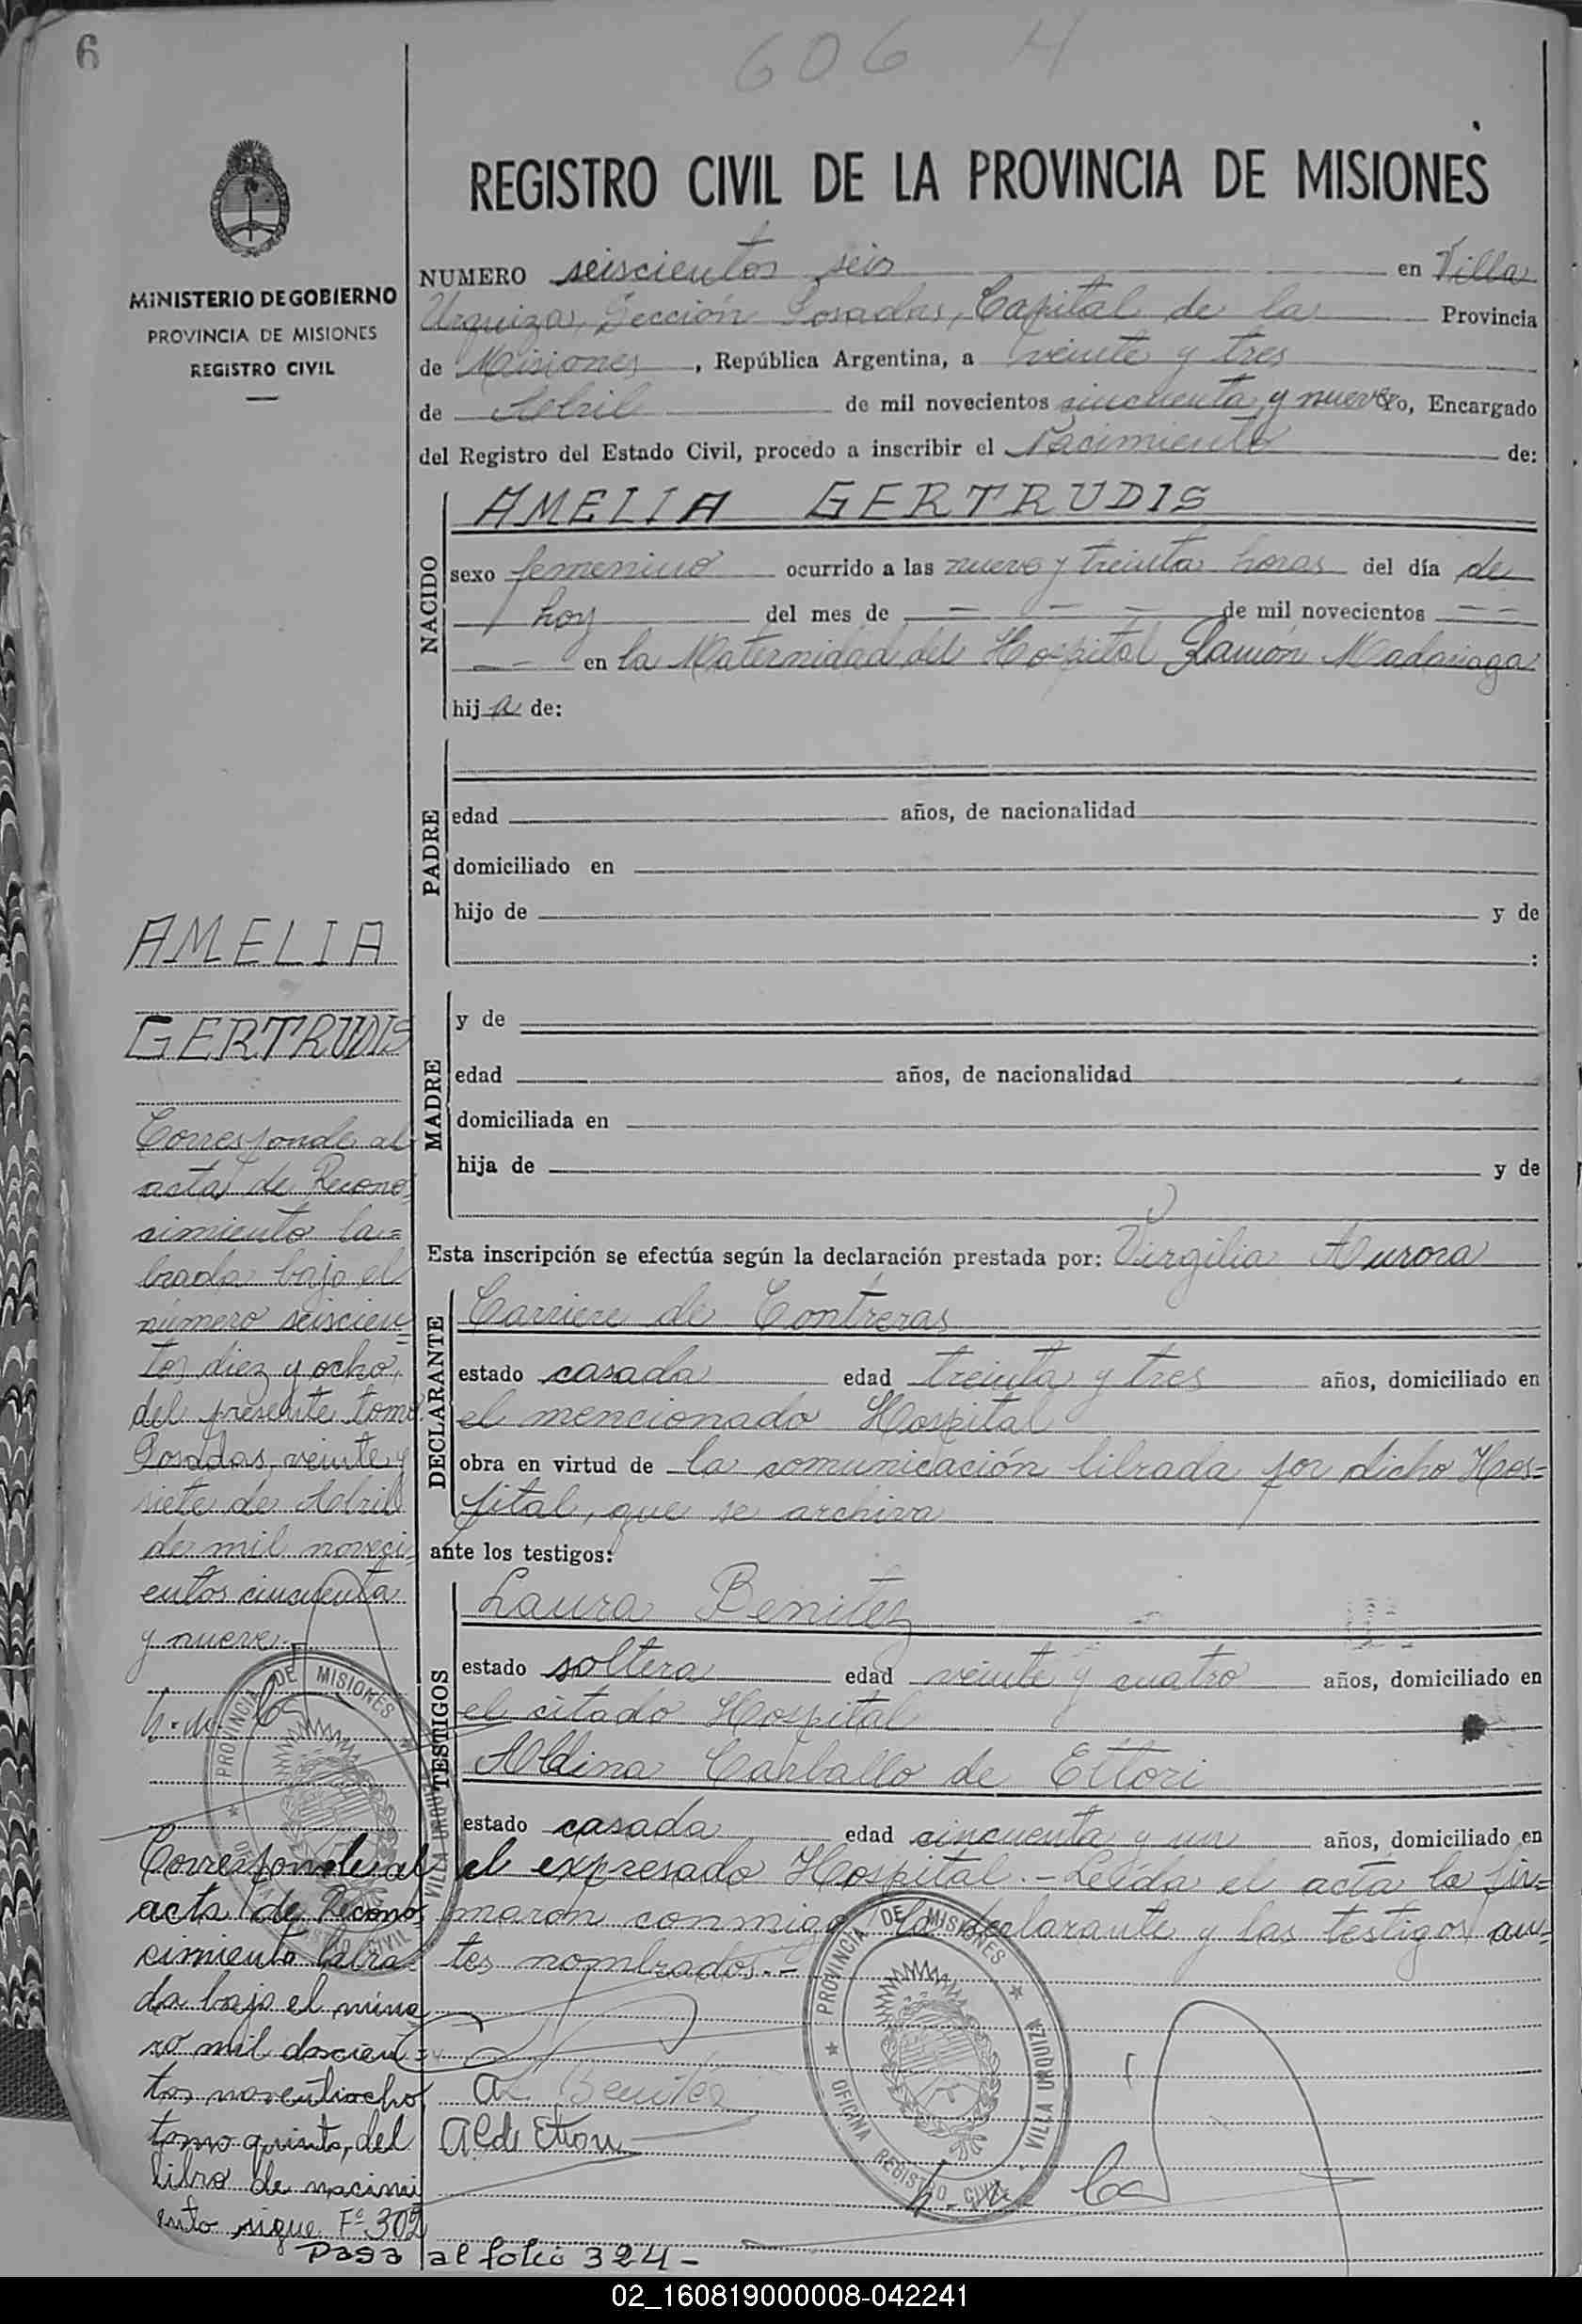 6
606 H
REGISTRO CIVIL DE LA PROVINCIA DE MISIONES
MINISTERIO DE GOBIERNO
PROVINCIA DE MISIONES
REGISTRO CIVIL
NUMERO seiscientos seis en Villa
Urquiza, Sección Posadas, Capital de la Provincia
de Misiones, República Argentina, a veinte y tres
de Abril de mil novecientos cincuenta y nueve, Encargado
del Registro del Estado Civil, procedo a inscribir el Nacimiento de:
NACIDO
AMELIA GERTRUDIS
sexo femenino ocurrido a las nueve y treinta horas del día de
hoy del mes de — — — de mil novecientos — —
— — en la Maternidad del Hospital Ramón Madariaga
hija de:
PADRE
edad años, de nacionalidad
domiciliado en
hijo de y de
:
MADRE
y de
edad años, de nacionalidad
domiciliada en
hija de y de
Esta inscripción se efectúa según la declaración prestada por: Virgilia Aurora
DECLARANTE
Carriere de Contreras
estado casada edad treinta y tres años, domiciliado en
el mencionado Hospital
obra en virtud de la comunicación librada por dicho Hos=
pital, que se archiva
ante los testigos:
TESTIGOS
Laura Benitez
estado soltera edad veinte y cuatro años, domiciliado en
el citado Hospital
Aldina Carballo de Ettori
estado casada edad cincuenta y un años, domiciliado en
el expresado Hospital.- Leída el acta la fir=
maron conmigo la declarante y las testigos an=
tes nombrados.-
Benitez
A C de Ettori
AMELIA
GERTRUDIS
Corresponde al
acta de Recono=
cimiento la=
brada bajo el
número seiscien=
tos diez y ocho,
del presente tomo
Posadas, veinte y
siete de Abril
de mil noveci=
entos cincuenta
y nueve.-
Corresponde al
acta de Recono=
cimiento labra=
da bajo el núme
ro mil doscien=
tos noventiocho
tomo quinto, del
libro de nacimi
ento sigue Fº 302
Pasa al folio 324-
PROVINCIA DE MISIONES
VILLA URQUIZA
PROVINCIA DE MISIONES
OFICINA REGISTRO CIVIL
VILLA URQUIZA
02_160819000008-042241